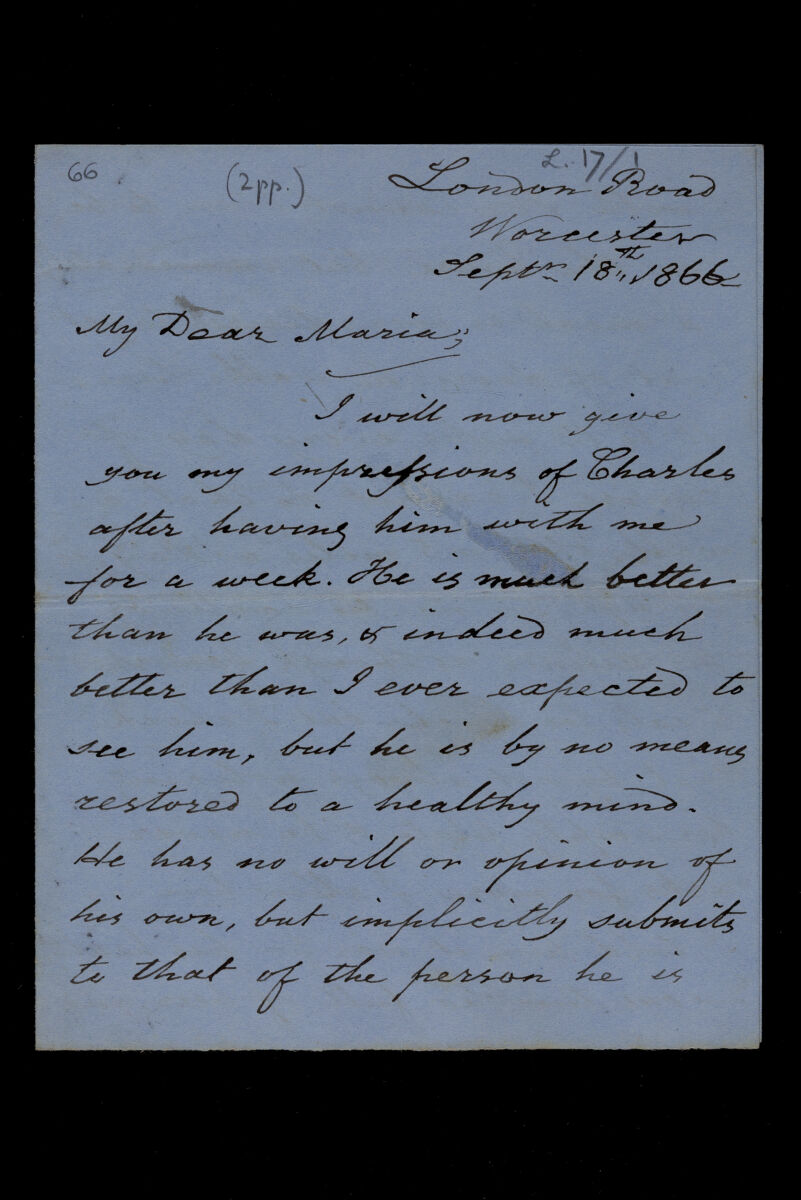 66
(2pp.)
L. 17/1
London Road
Worcester
Septr. 18th 1866
My Dear Maria,
I will now give
you my impressions of Charles
after having him with me
for a week. He is much better
than he was, & indeed much
better than I ever expected to
see him, but he is by no means
restored to a healthy mind.
He has no will or opinion of
his own, but implicitly submits
to that of the person he is